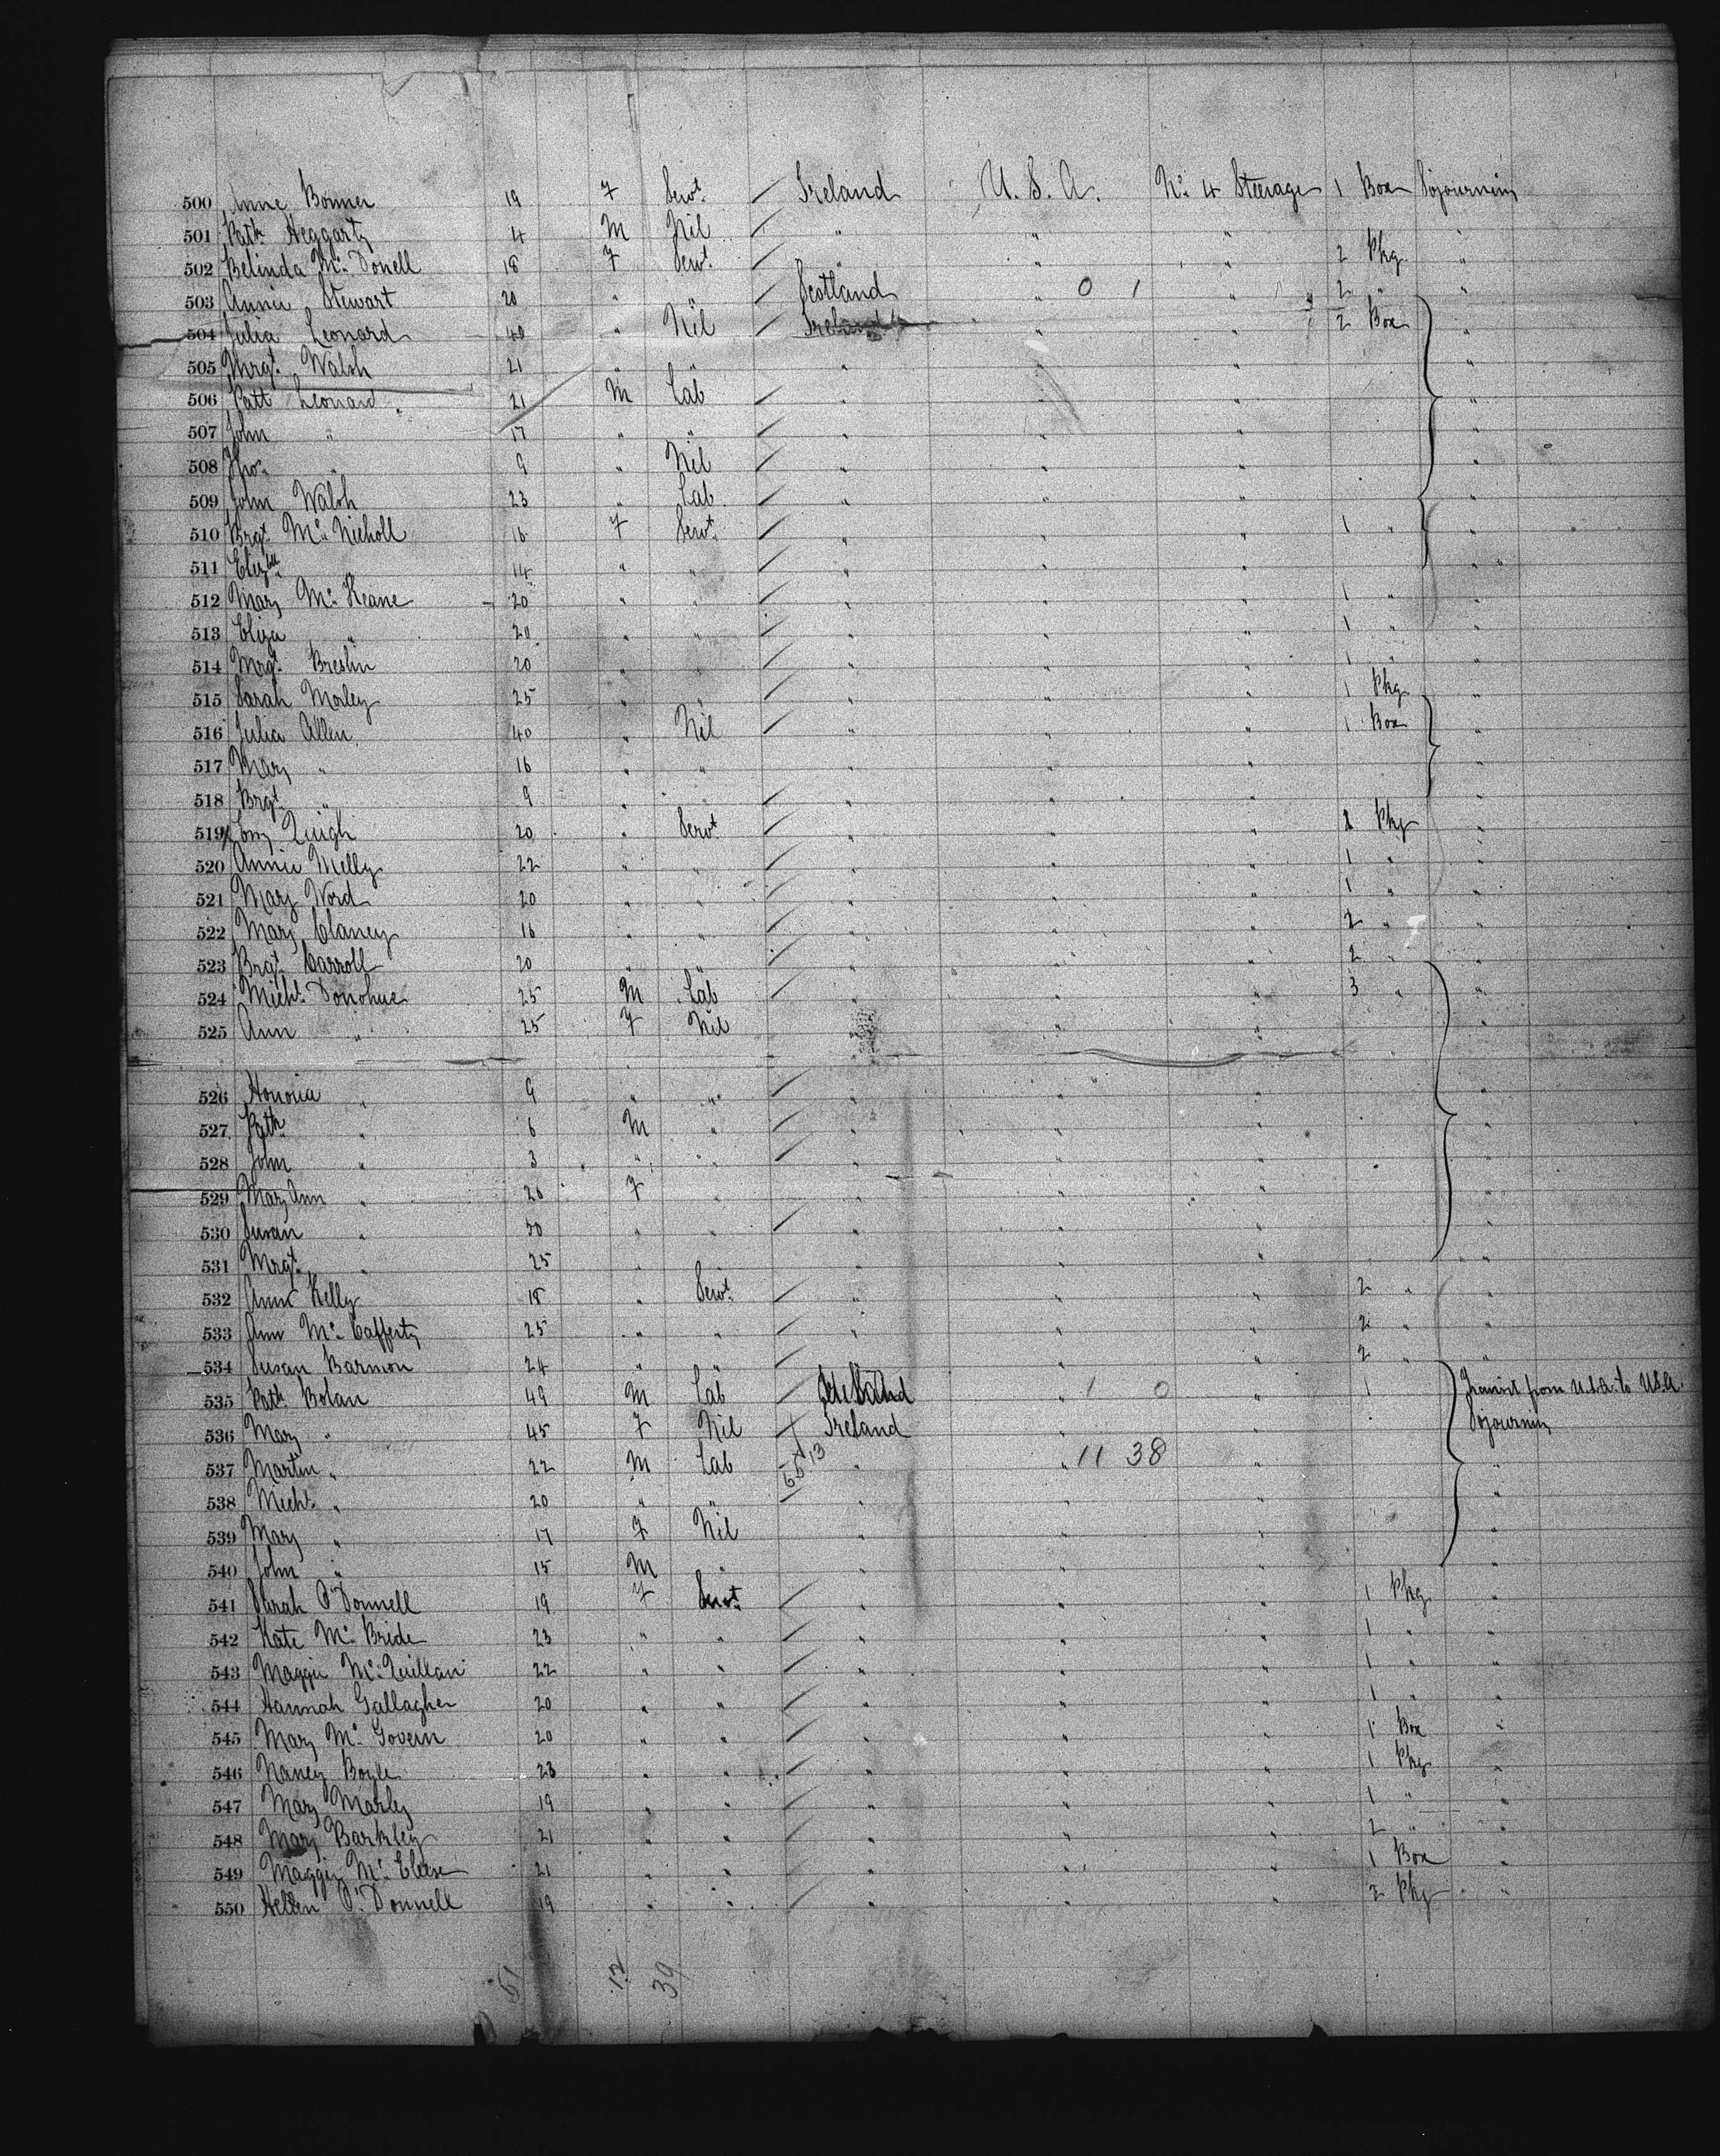 500 Annie Bonner 19 F Servt. Ireland U. S. A. No. 4 Steerage 1 Box Sojourning
501 Patk. Heggarty 4 M Nil " " " "
502 Belinda Mc. Donell 18 F Servt. " " " 2 Pkg. "
503 Annie Stewart 20 " " Scotland " 0 1 " 2 " "
504 Julia Leonard 40 " Nil Ireland " " 2 Box "
505 Mrgt. Walsh 21 " " " " " "
506 Patt Leonard 21 M Lab " " " "
507 John " 17 " " " " " "
508 Thos. " 9 " Nil " " " "
509 John Walsh 23 " Lab. " " " "
510 Brgt. Mc. Nicholl 16 F Servt. " " " 1 " "
511 Elizth. 14 " " " " " " "
512 Mary Mc. Keane 20 " " " " " 1 " "
513 Eliza " 20 " " " " " 1 " "
514 Mrgt. Breslin 20 " " " " " 1 " "
515 Sarah Morley 25 " " " " " 1 Pkg "
516 Julia Allen 40 " Nil " " " 1 Box "
517 Mary " 16 " " " " " "
518 Brgt. " 9 " " " " " "
519 Quigh 20 " Servt. " " " 1 Pkg "
520 Annie Melly 22 " " " " " 1 " "
521 Mary Word 20 " " " " " 1 " "
522 Mary Clancy 16 " " " " " 2 " "
523 Brgt. Carroll 20 " " " " " 2 " "
524 Michl. Donohue 25 M Lab " " " 3 " "
525 Ann " 25 F Nil " " "
526 Honoria " 9 " " " " " "
527 Patk " 6 M " " " " "
528 John " 3 " " " " " "
529 Mary Ann " 26 F " " " " "
530 Susan " 30 " " " " " "
531 Mrgt. " 25 " " " " "
532 Ann Kelly 18 " Servt. " " " 2 " "
533 Ann Mc. Cafferty 25 " " " " " 2 " "
534 Susan Barmon 24 " " " " " 2 " "
535 Patk. Bolan 49 M Lab " 1 0 " 1 Transit from U.S.A. to U.S.A.
536 Mary " 45 F Nil Ireland " " Sojourning
537 Martin " 22 M Lab 6513 " " 11 38 " "
538 Michl. " 20 " " " " " "
539 Mary " 17 F Nil " " " "
540 John " 15 M " " " " "
541 Sarah O'Donnell 19 F Servt. " " " 1 Pkg. "
542 Kate Mc. Bride 23 " " " " " 1 " "
543 Maggie Mc. Quillan 22 " " " " " 1 " "
544 Hannah Gallagher 20 " " " " " 1 " "
545 Mary Mc. Govern 20 " " " " " 1 Box "
546 Nancy Boyle 23 " " " " " 1 Pkg "
547 Mary Marley 19 " " " " " 1 " "
548 Mary Barkley 21 " " " " " 2 " "
549 Maggie Mc. 21 " " " " " 1 Box "
550 Hellen O'Donnell 19 " " " " " 2 Pkg "
51 12 39